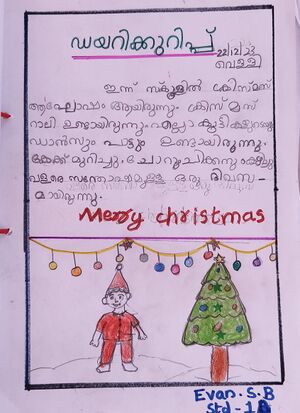 ഡയറിക്കുറിപ്പ്
22/12/23
വെള്ളി
ഇന്ന് സ്കൂളിൽ ക്രിസ്മസ്
ആഘോഷം ആയിരുന്നു. ക്രിസ്മസ്
റാലി ഉണ്ടായിരുന്നു. എല്ലാ കുട്ടികളുടെയും
ഡാൻസും പാട്ടും ഉണ്ടായിരുന്നു.
കേക്ക് മുറിച്ചു. ചോറും ചിക്കനും കഴിച്ചു
വളരെ സന്തോഷമുള്ള ഒരു ദിവസ-
മായിരുന്നു.
Merry christmas
Evan. S. B
Std - 1 B